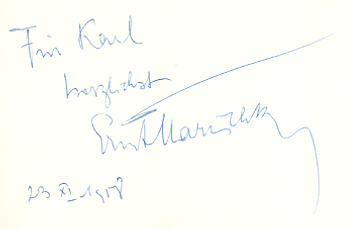 Für Karl
herzlichst
Ernst Marischka
23 XI 1958